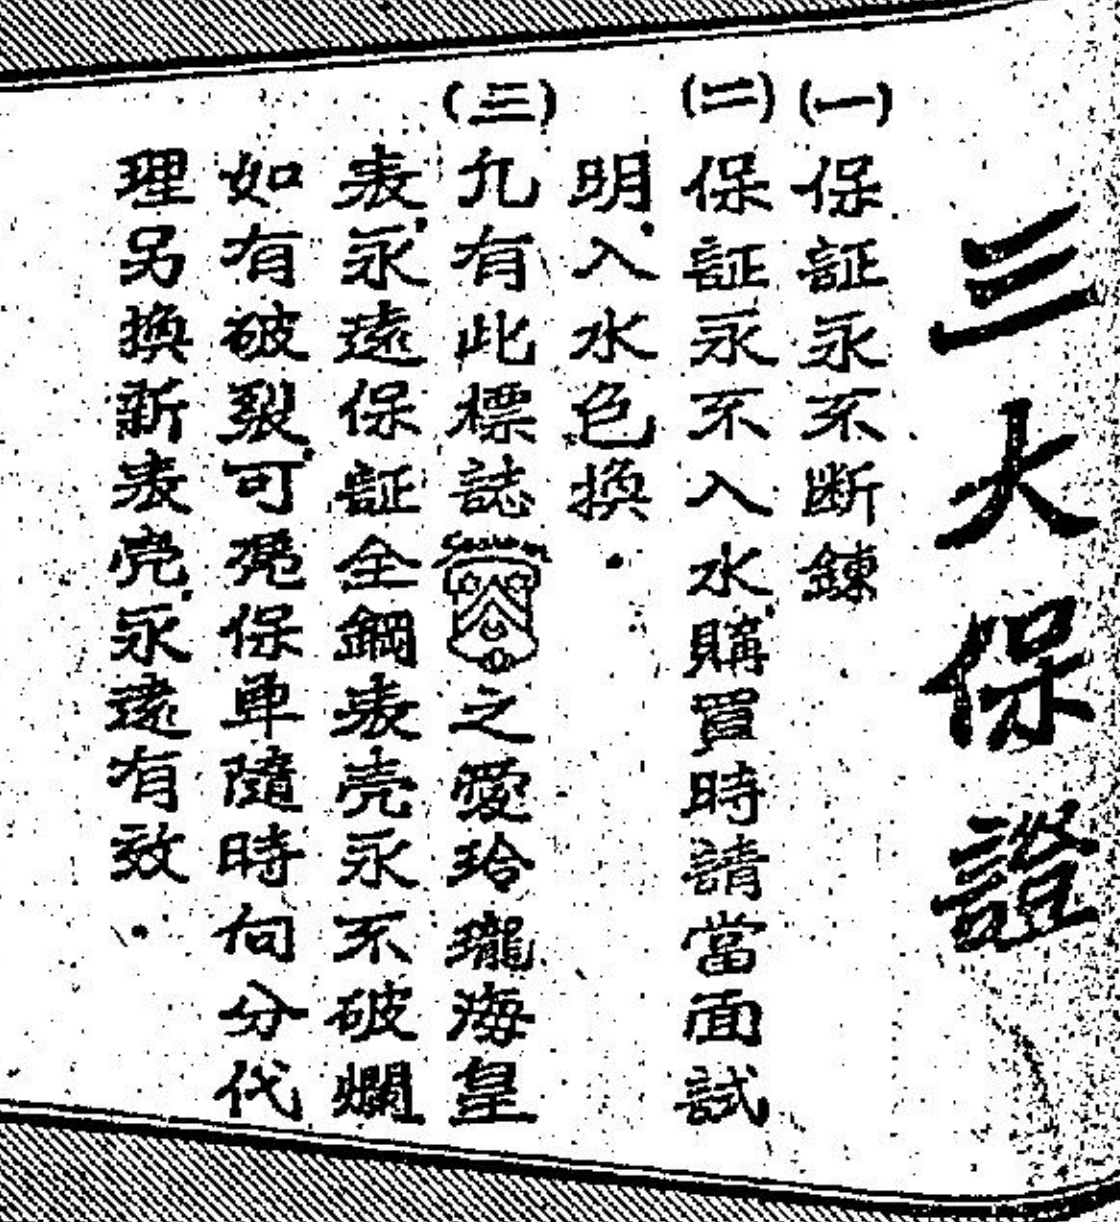 三大保證
(一)保証永不断鍊
(二)保証永不入水購買時請當面試
明,入水色換.
(三)凢有此標誌之愛玲瓏海皇
表,永遠保証全鋼表壳永不破爛
如有破裂,可凴保单隨時向分代
理另換新表壳,永遠有效.